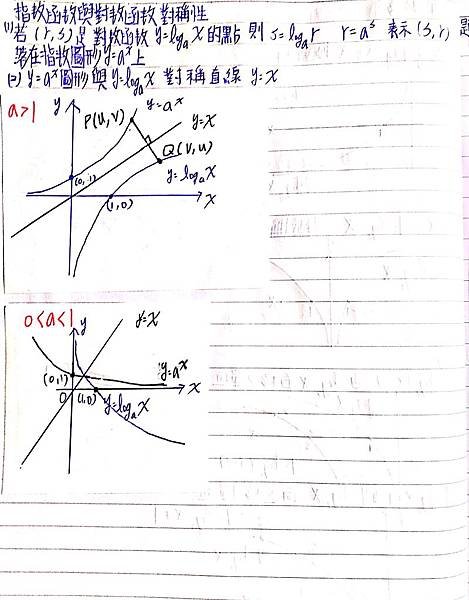 指數函數與對數函數對稱性
(1)若(r,s)是對數函數y=logₐx的點 則s=logₐr r=aˢ 表示(s,r)
落在指數圖形y=aˣ上
(2) y=aˣ圖形與y=logₐx 對稱直線 y=x
a>1
y
P(u,v)
y=aˣ
y=x
Q(v,u)
y=logₐx
(0,1)
(1,0)
x
0<a<1
y
y=x
(0,1)
y=aˣ
x
O
(1,0)
y=logₐx